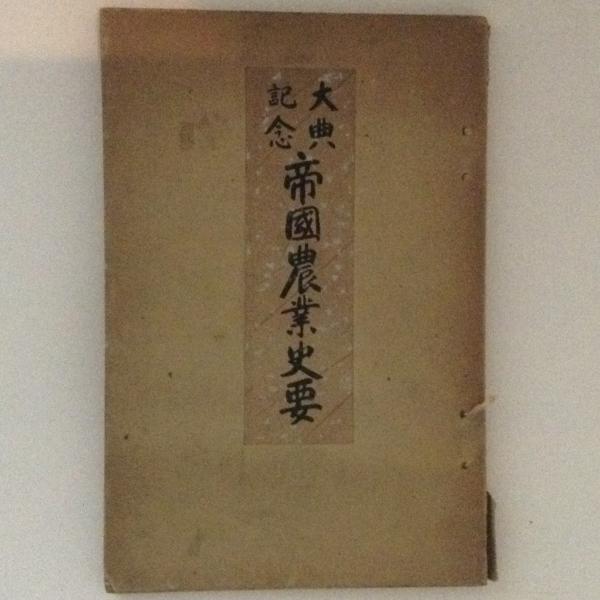 大典
記念
帝國農業史要